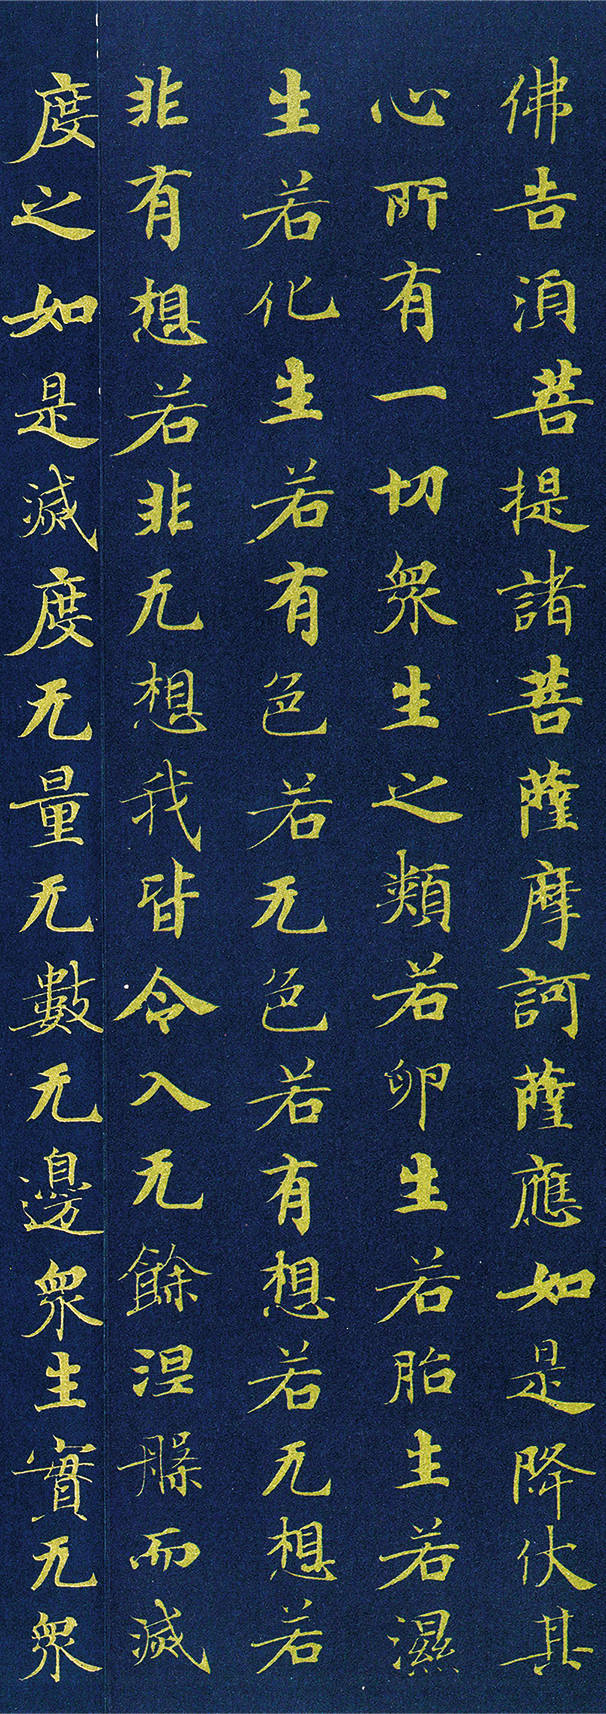 佛告須菩提諸菩薩摩訶薩應如是降伏其
心所有一切衆生之類若卵生若胎生若濕
生若化生若有色若无色若有想若无想若
非有想若非无想我皆令入无餘涅槃而滅
度之如是滅度无量无數无邊衆生實无衆